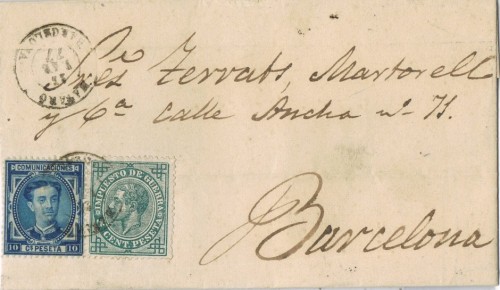 Sres Ferrats, Martorell
y Cª Calle Ancha nº 71.
Barcelona
COMUNICACIONES
10 10
Cs PESETA
IMPUESTO DE GUERRA
5 CENT. PESETA
NAVARR
77